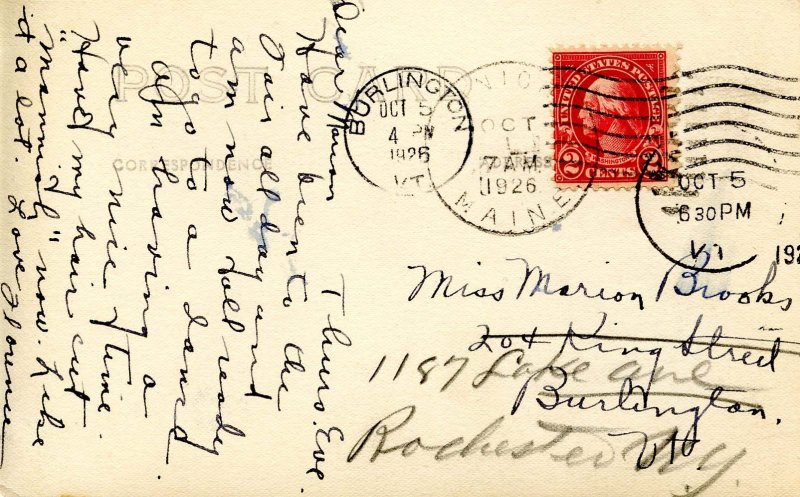 POST CARD
CORRESPONDENCE
ADDRESS
Thurs. Eve.
Dear Marion
Have been to the
Fair all day and
am now all ready
to go to a dance.
Am having a
very nice time.
Have my hair cut
"mannish" now. Like
it a lot. Love Florence
BURLINGTON
OCT 5
4 PM
1926
VT.
OCT
7 AM
1926
MAINE
UNITED STATES POSTAGE
WASHINGTON
2 CENTS 2
OCT 5
6 30 PM
VT
192
Miss Marion Brooks
204 King Street
1187 Lake ave
Burlington,
Vt
Rochester N.Y.